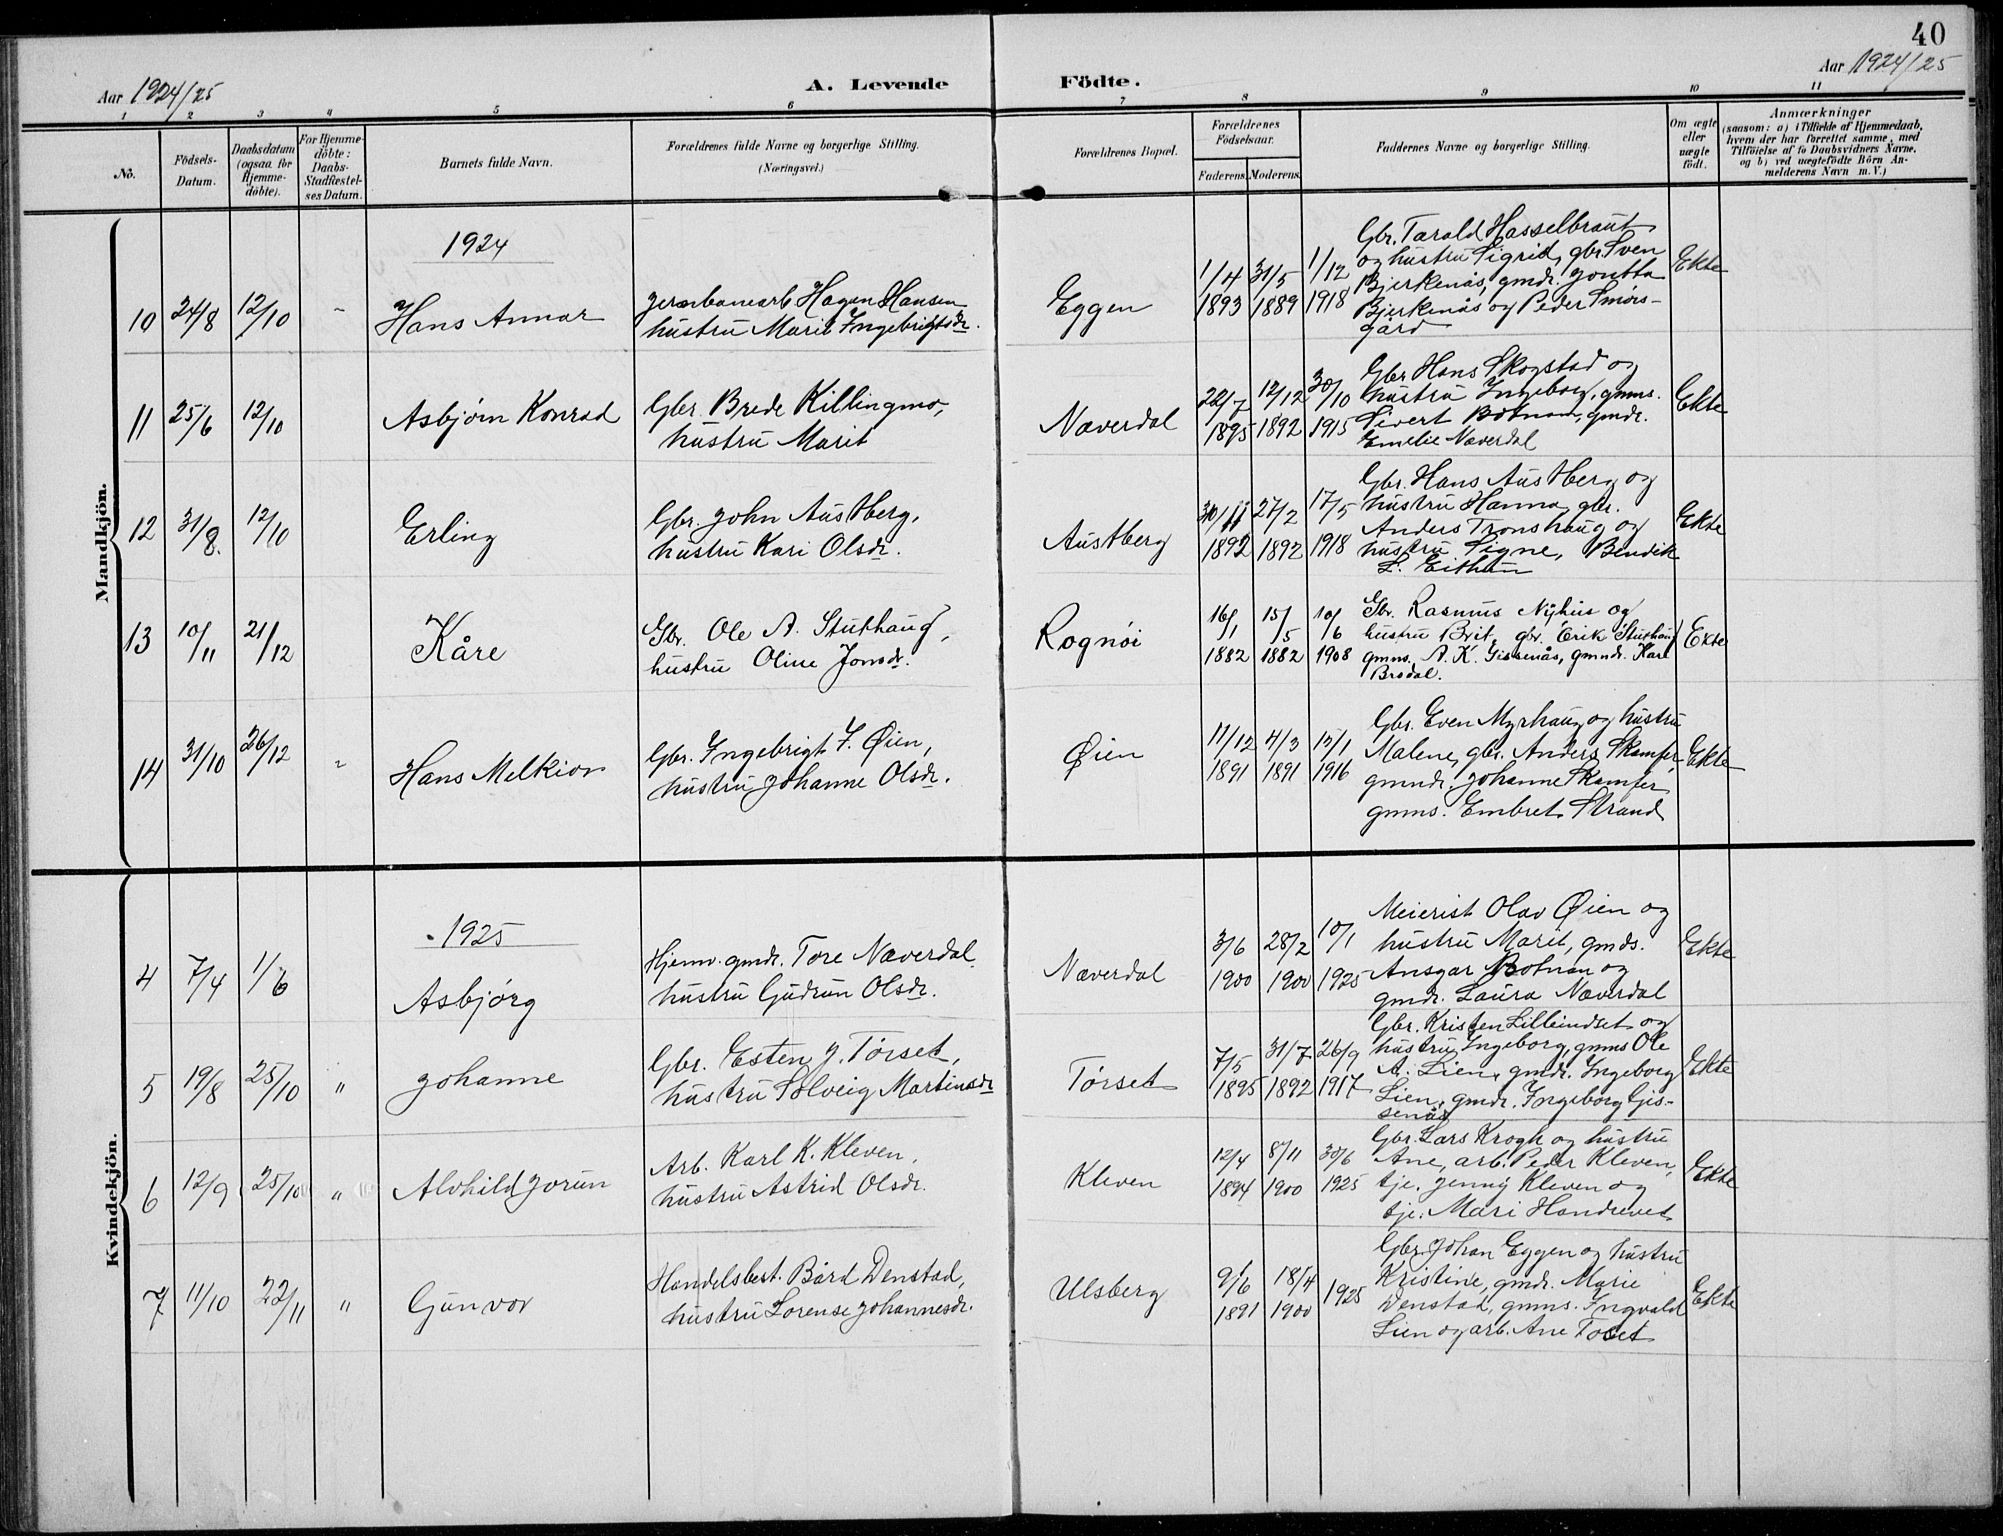 40
Aar 1924/25
A. Levende Födte.
Aar 1924/25
1 2 3 4 5 6 7 8 9 10 11
No.
Födsels-Datum.
Daabsdatum (ogsaa for Hjemme-döbte).
For Hjemme-döbte: Daabs-Stadfæstel-ses Datum.
Barnets fulde Navn.
Forældrenes fulde Navne og borgerlige Stilling.
(Næringsvei.)
Forældrenes Bopæl.
Forældrenes Födselsaar.
Faderens. Moderens.
Faddernes Navne og borgerlige Stilling.
Om ægte eller uægte födt.
Anmærkninger
(saasom: a) i Tilfælde af Hjemmedaab,
hvem der har forrettet samme, med
Tilföielse af to Daabsvidners Navne,
og b) ved uægtefödte Börn An-
melderens Navn m. V.)
Mandkjön.
1924
10 24/8 12/10 Hans Annar
jernbanearb. Hagen Hansen
hustru Marit Ingebrigtsdr.
Eggen
1/4 1893 31/5 1889 1/12 1918
Gbr. Tarald Hasselbraut
og hustru Sigrid, gbr. Sven
Bjerkenås, gmdr. Jonetta
Bjerkenås og Peder Smørs-
gård
Ekte
11 25/6 12/10 Asbjørn Konrad
Gbr. Brede Killingmo,
hustru Marit
Næverdal
22/7 1895 12/12 1892 30/10 1915
Gbr. Hans Skogstad og
hustru Ingeborg, gmns.
Sivert Botnan, gmdr.
Emelie Næverdal
Ekte
12 31/8. 12/10 Erling
Gbr. John Austberg,
hustru Kari Olsdr.
Austberg
30/11 1892 27/2 1892 17/5 1918
Gbr. Hans Austberg og
hustru Hanna, gbr.
Anders Tronshaug og
hustru Signe, Bendik
L. Eithun
Ekte
13 10/11 21/12 Kåre
Gbr. Ole A. Stuthaug,
hustru Oline Jonsdr.
Rognöi
16/1 1882 15/5 1882 10/6 1908
Gbr. Rasmus Nyhus og
hustru Brit, gbr. Erik Stuthaug
gmns. A. K. Gissenås, gmndr. Kari
Brodal.
Ekte
14 31/10 26/12 " Hans Melkior
Gbr. Ingebrigt I. Øien,
hustru Johanne Olsdr.
Øien
11/12 1891 4/3 1891 15/1 1916
Gbr. Even Myrhaug og hustru
Malene, gbr. Anders Skamfer
gmndr. Johanne Skamfer
gmns. Embret Strand
Ekte
Kvindekjön.
1925
4 7/4 1/6 Asbjørg
Hjemv. gmdr. Tore Næverdal
hustru Gudrun Olsdr.
Næverdal
3/6 1900 28/2 1900 10/1 1925
Meierist Olav Øien og
hustru Marit, gmds.
Ansgar Botnan og
gmdr. Laura Næverdal
Ekte
5 19/8 25/10 " Johanne
Gbr. Esten J. Tørset,
hustru Solveig Martinsdr
Tørset
7/5 1895 31/7 1892 26/9 1917
Gbr. Kristen Lilleindset og
hustru Ingeborg, gmns Ole
A. Lien, gmdr. Ingeborg
Lien, gmdr. Ingeborg Gis-
senås
Ekte
6 12/9 25/10 " Alvhild Jorun
Arb. Karl K. Kleven,
hustru Astrid Olsdr.
Kleven
12/4 1894 8/11 1900 30/6 1925
Gbr. Lars Krogh og hustru
Ane, arb. Peder Kleven,
tje. Jenny Kleven og
tje. Mari Handrevet
Ekte
7 11/10 22/11 " Gunvor
Handelsbest. Bård Denstad,
hustru Lorense Johannesdr.
Ulsberg
9/6 1891 18/4 1900 1925
Gbr. Johan Eggen og hustru
Kristine, gmdr. Marie
Denstad, gmns. Ingvald
Lien og arb. Ane Toset
Ekte